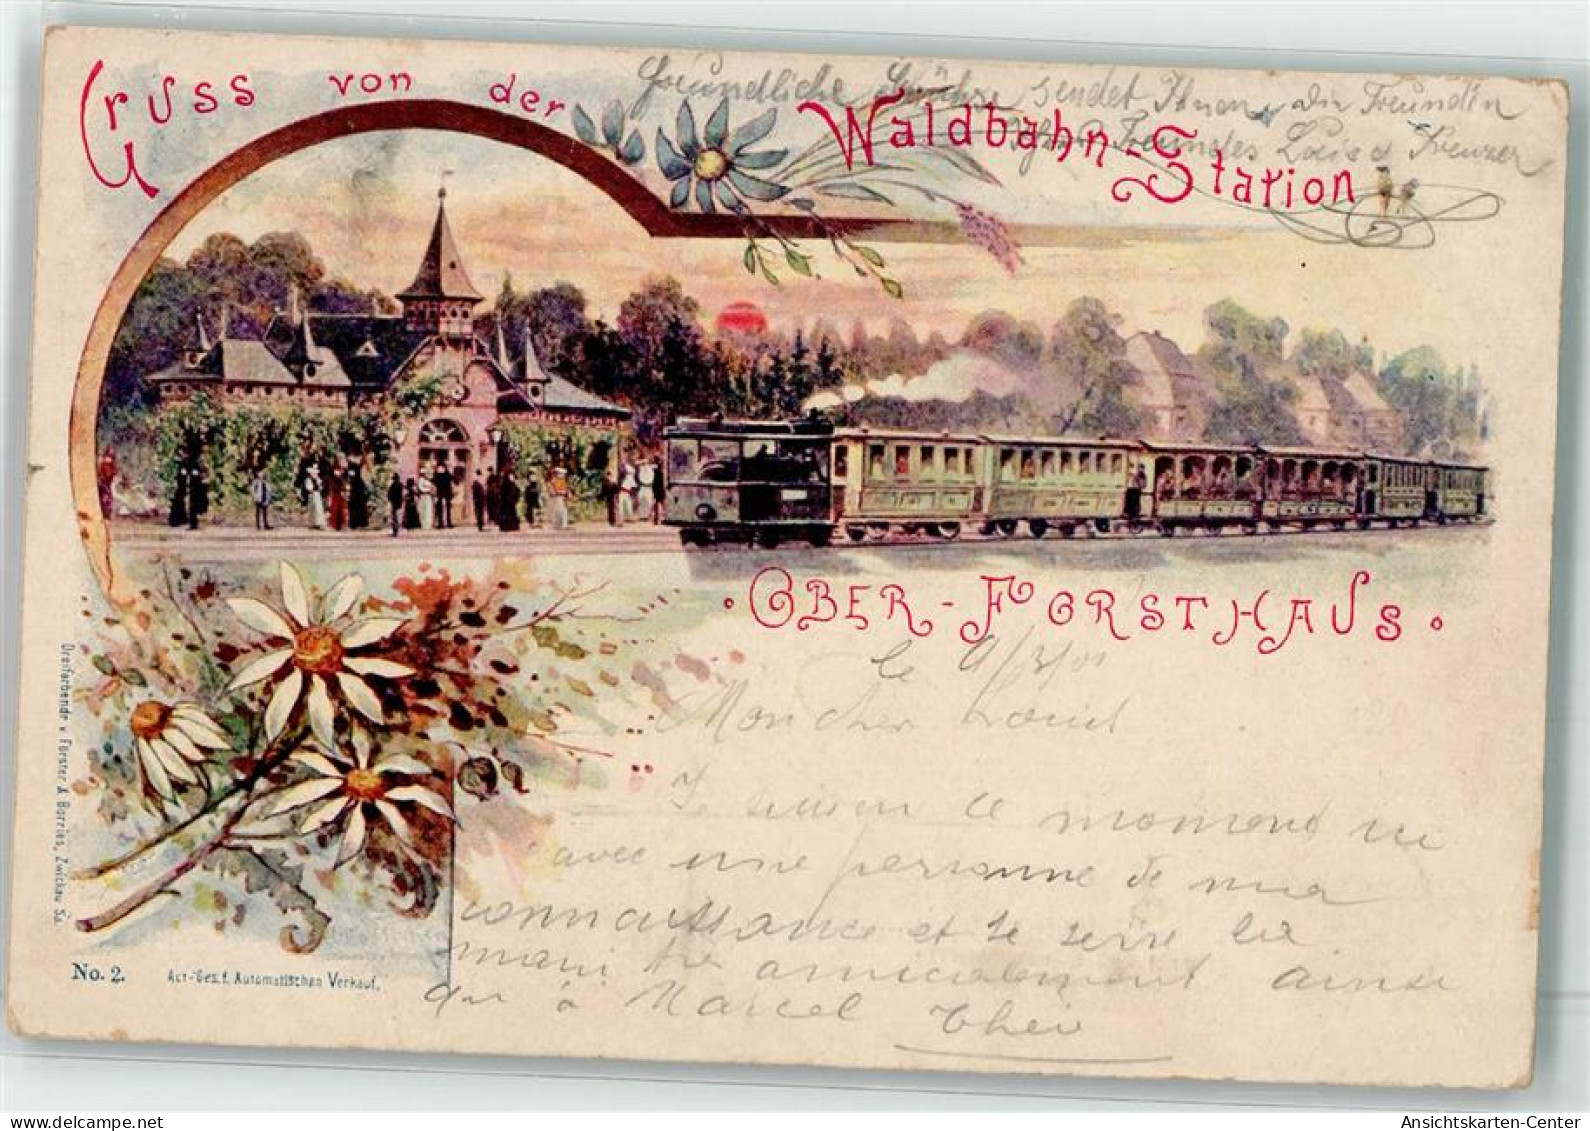 Gruss von der Waldbahn-Station
Freundliche Grüße sendet Ihnen die Freundin
Ihres Freundes Louis
OBER-FORSTHAUS
le 9/3/01
Mon cher Louis
Je suis en ce moment ici
avec une personne de ma
connaissance et te serre la
main très amicalement ainsi
qu'à Marcel
Dreifarbendr. v. Förster & Borries, Zwickau Sa.
No. 2. Act.-Ges. f. Automatischen Verkauf.
www.delcampe.net
Ansichtskarten-Center